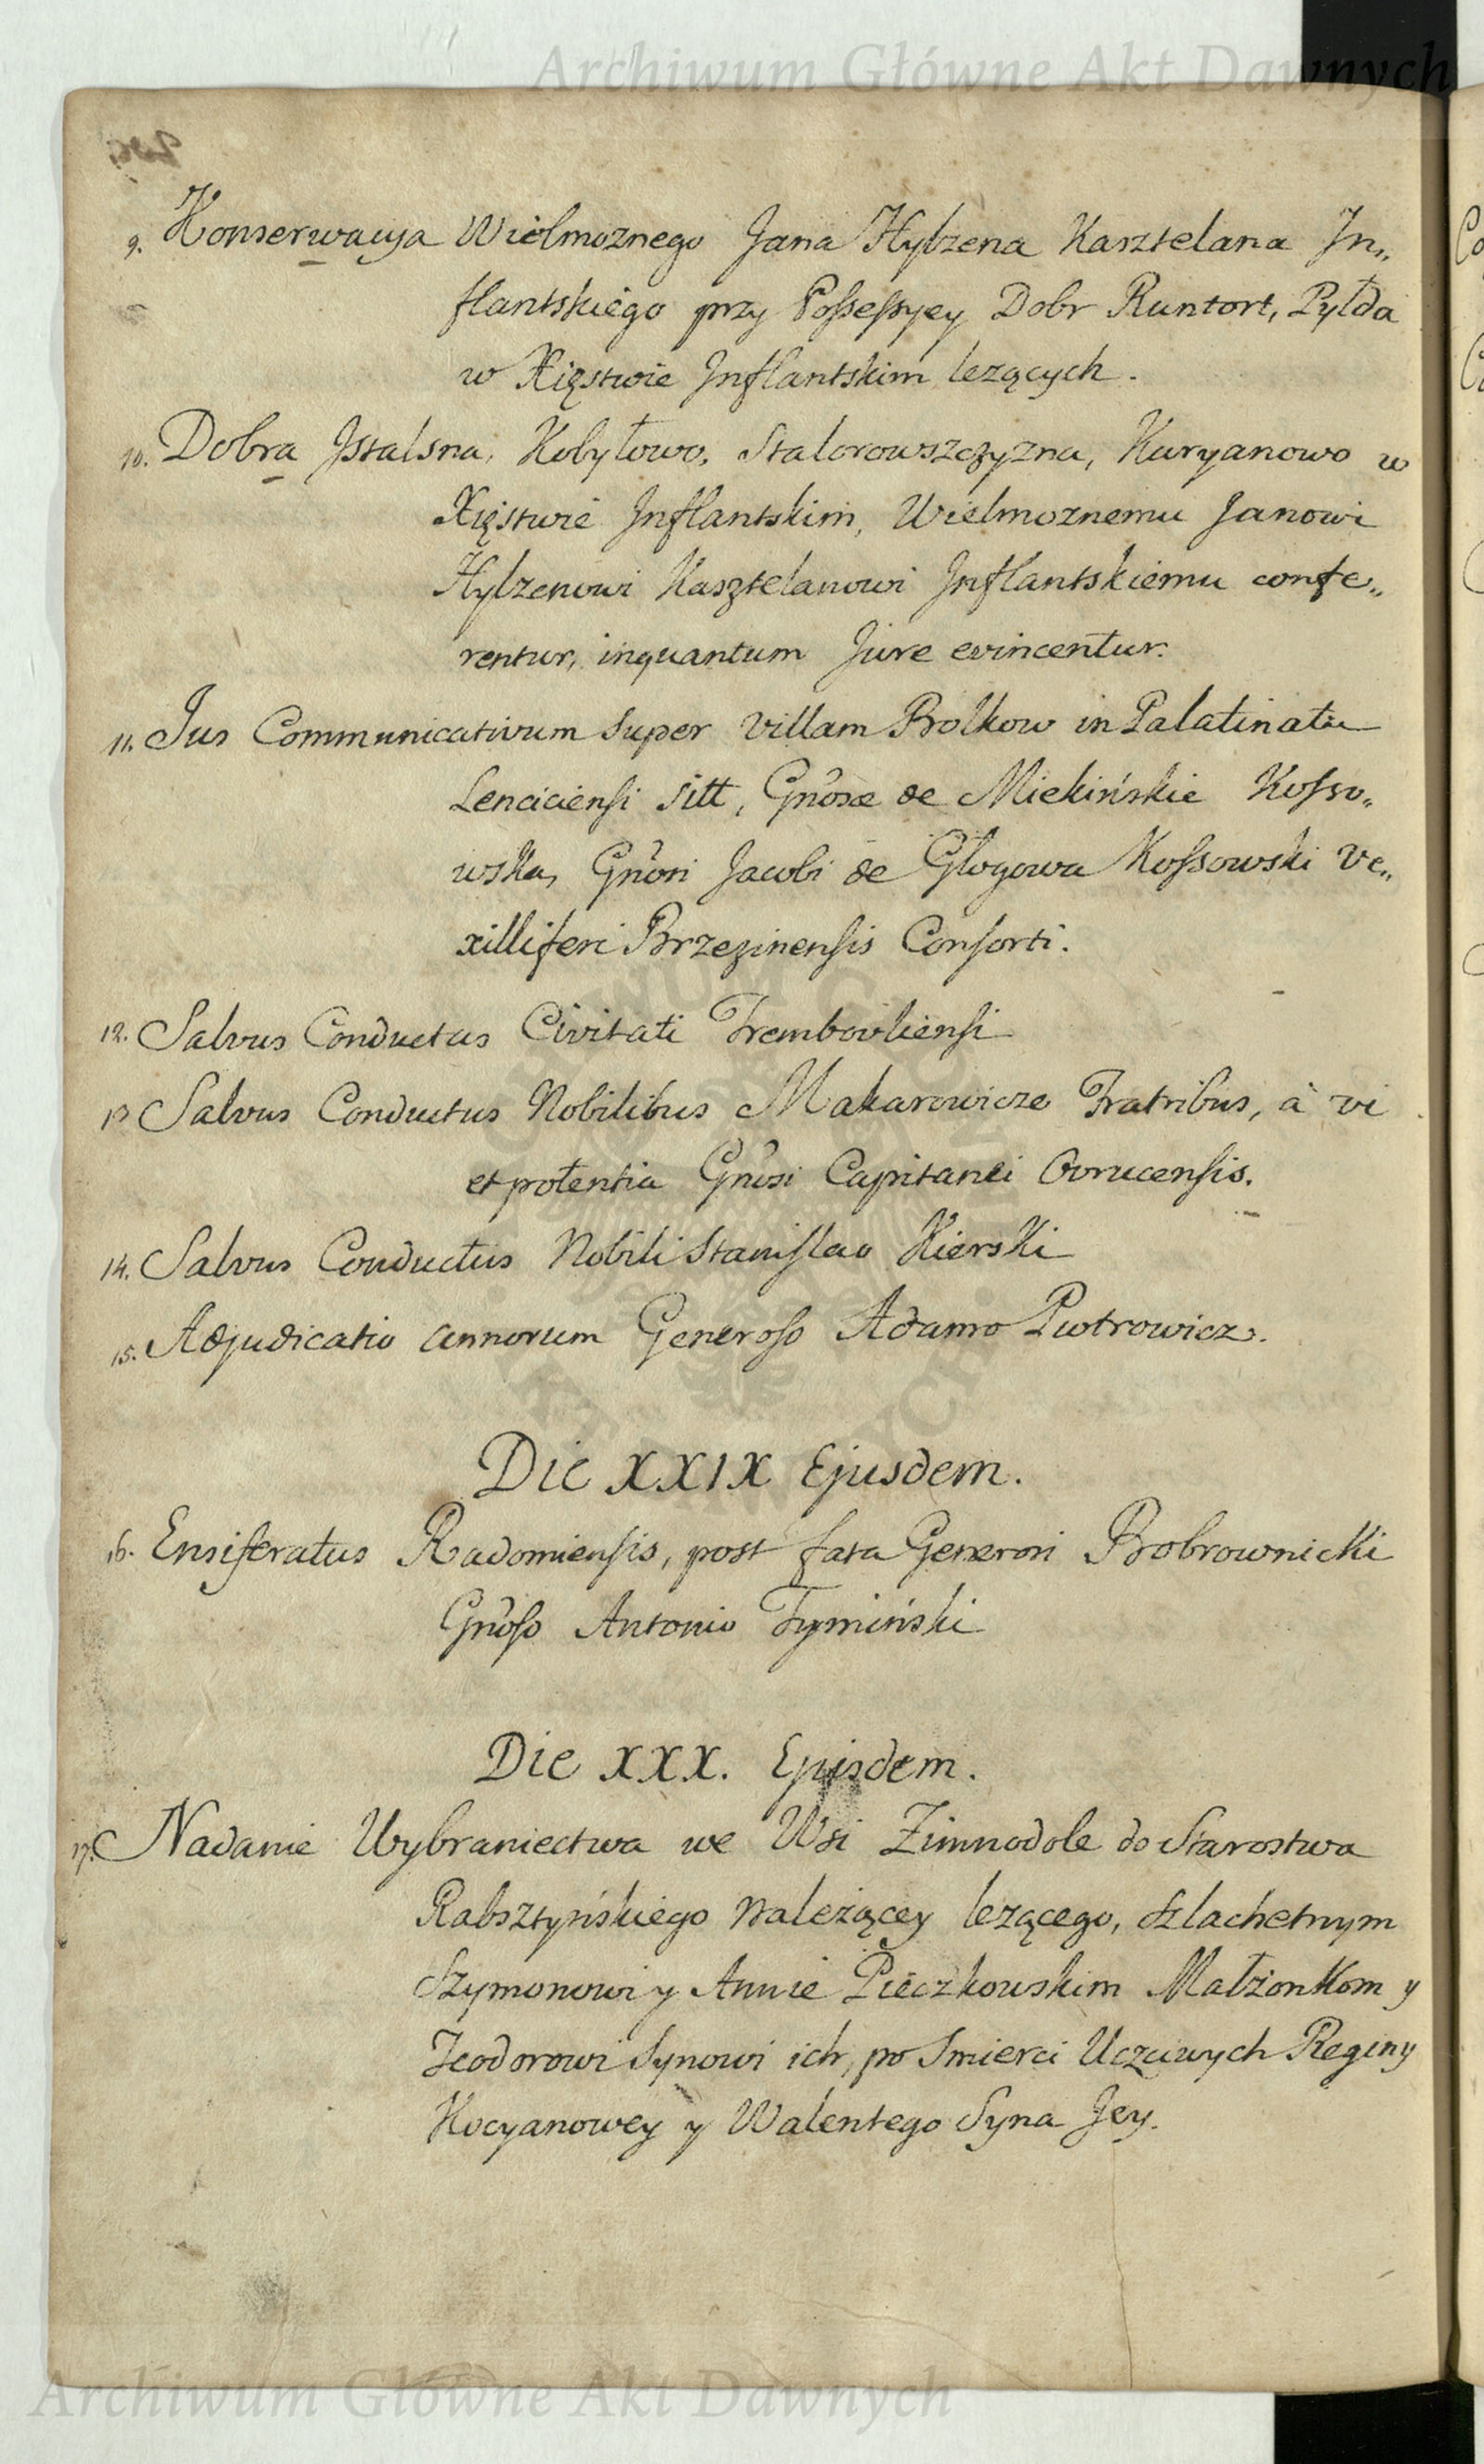 Archiwum Główne Akt Dawnych
9. Konserwacya Wielmoznego Jana Hylzena Kasztelana In„
flantskiego przy Possessyey Dobr Runtort, Pyłda
w Xięstwie Inflantskim lezących.
10. Dobra Istalsna, Kobyłowo, Stalorowszczyzna, Kuryanowo w
Xięstwie Inflantskim, Wielmoznemu Janowi
Hylzenowi Kasztelanowi Inflantskiemu confe„
rentur, inquantum Jure evincentur.
11. Jus Communicativum super villam Bolkow in Palatinatu
Lenciciensi sitt, Gnosæ de Miekińskie Kosso„
wska, Gnosi Jacobi de Głogowa Kossowski Ve„
xilliferi Brzezinensis Consorti.
12. Salvus Conductus Civitati Trembovliensi
13 Salvus Conductus Nobilibus Makarowicze Fratribus, à vi
et potentia Gnosi Capitanei Ovrucensis.
14. Salvus Conductus Nobili Stanislao Kierski
15. Adjudicatio Annorum Generoso Adamo Piotrowicz.
Die XXIX Ejusdem.
16. Ensiferatus Radomiensis, post fata Generosi Bobrownicki
Gnoso Antonio Tymiński
Die XXX. Ejusdem.
17. Nadanie Wybraniectwa we Wsi Zimnodole do Starostwa
Rabsztyńskiego Należącey lezącego, Szlachetnym
Szymonowi y Annie Pieczkowskim Małżonkom y
Teodorowi Synowi ich, po Smierci Uczciwych Reginy
Kocyanowey y Walentego Syna Jey.
Archiwum Główne Akt Dawnych